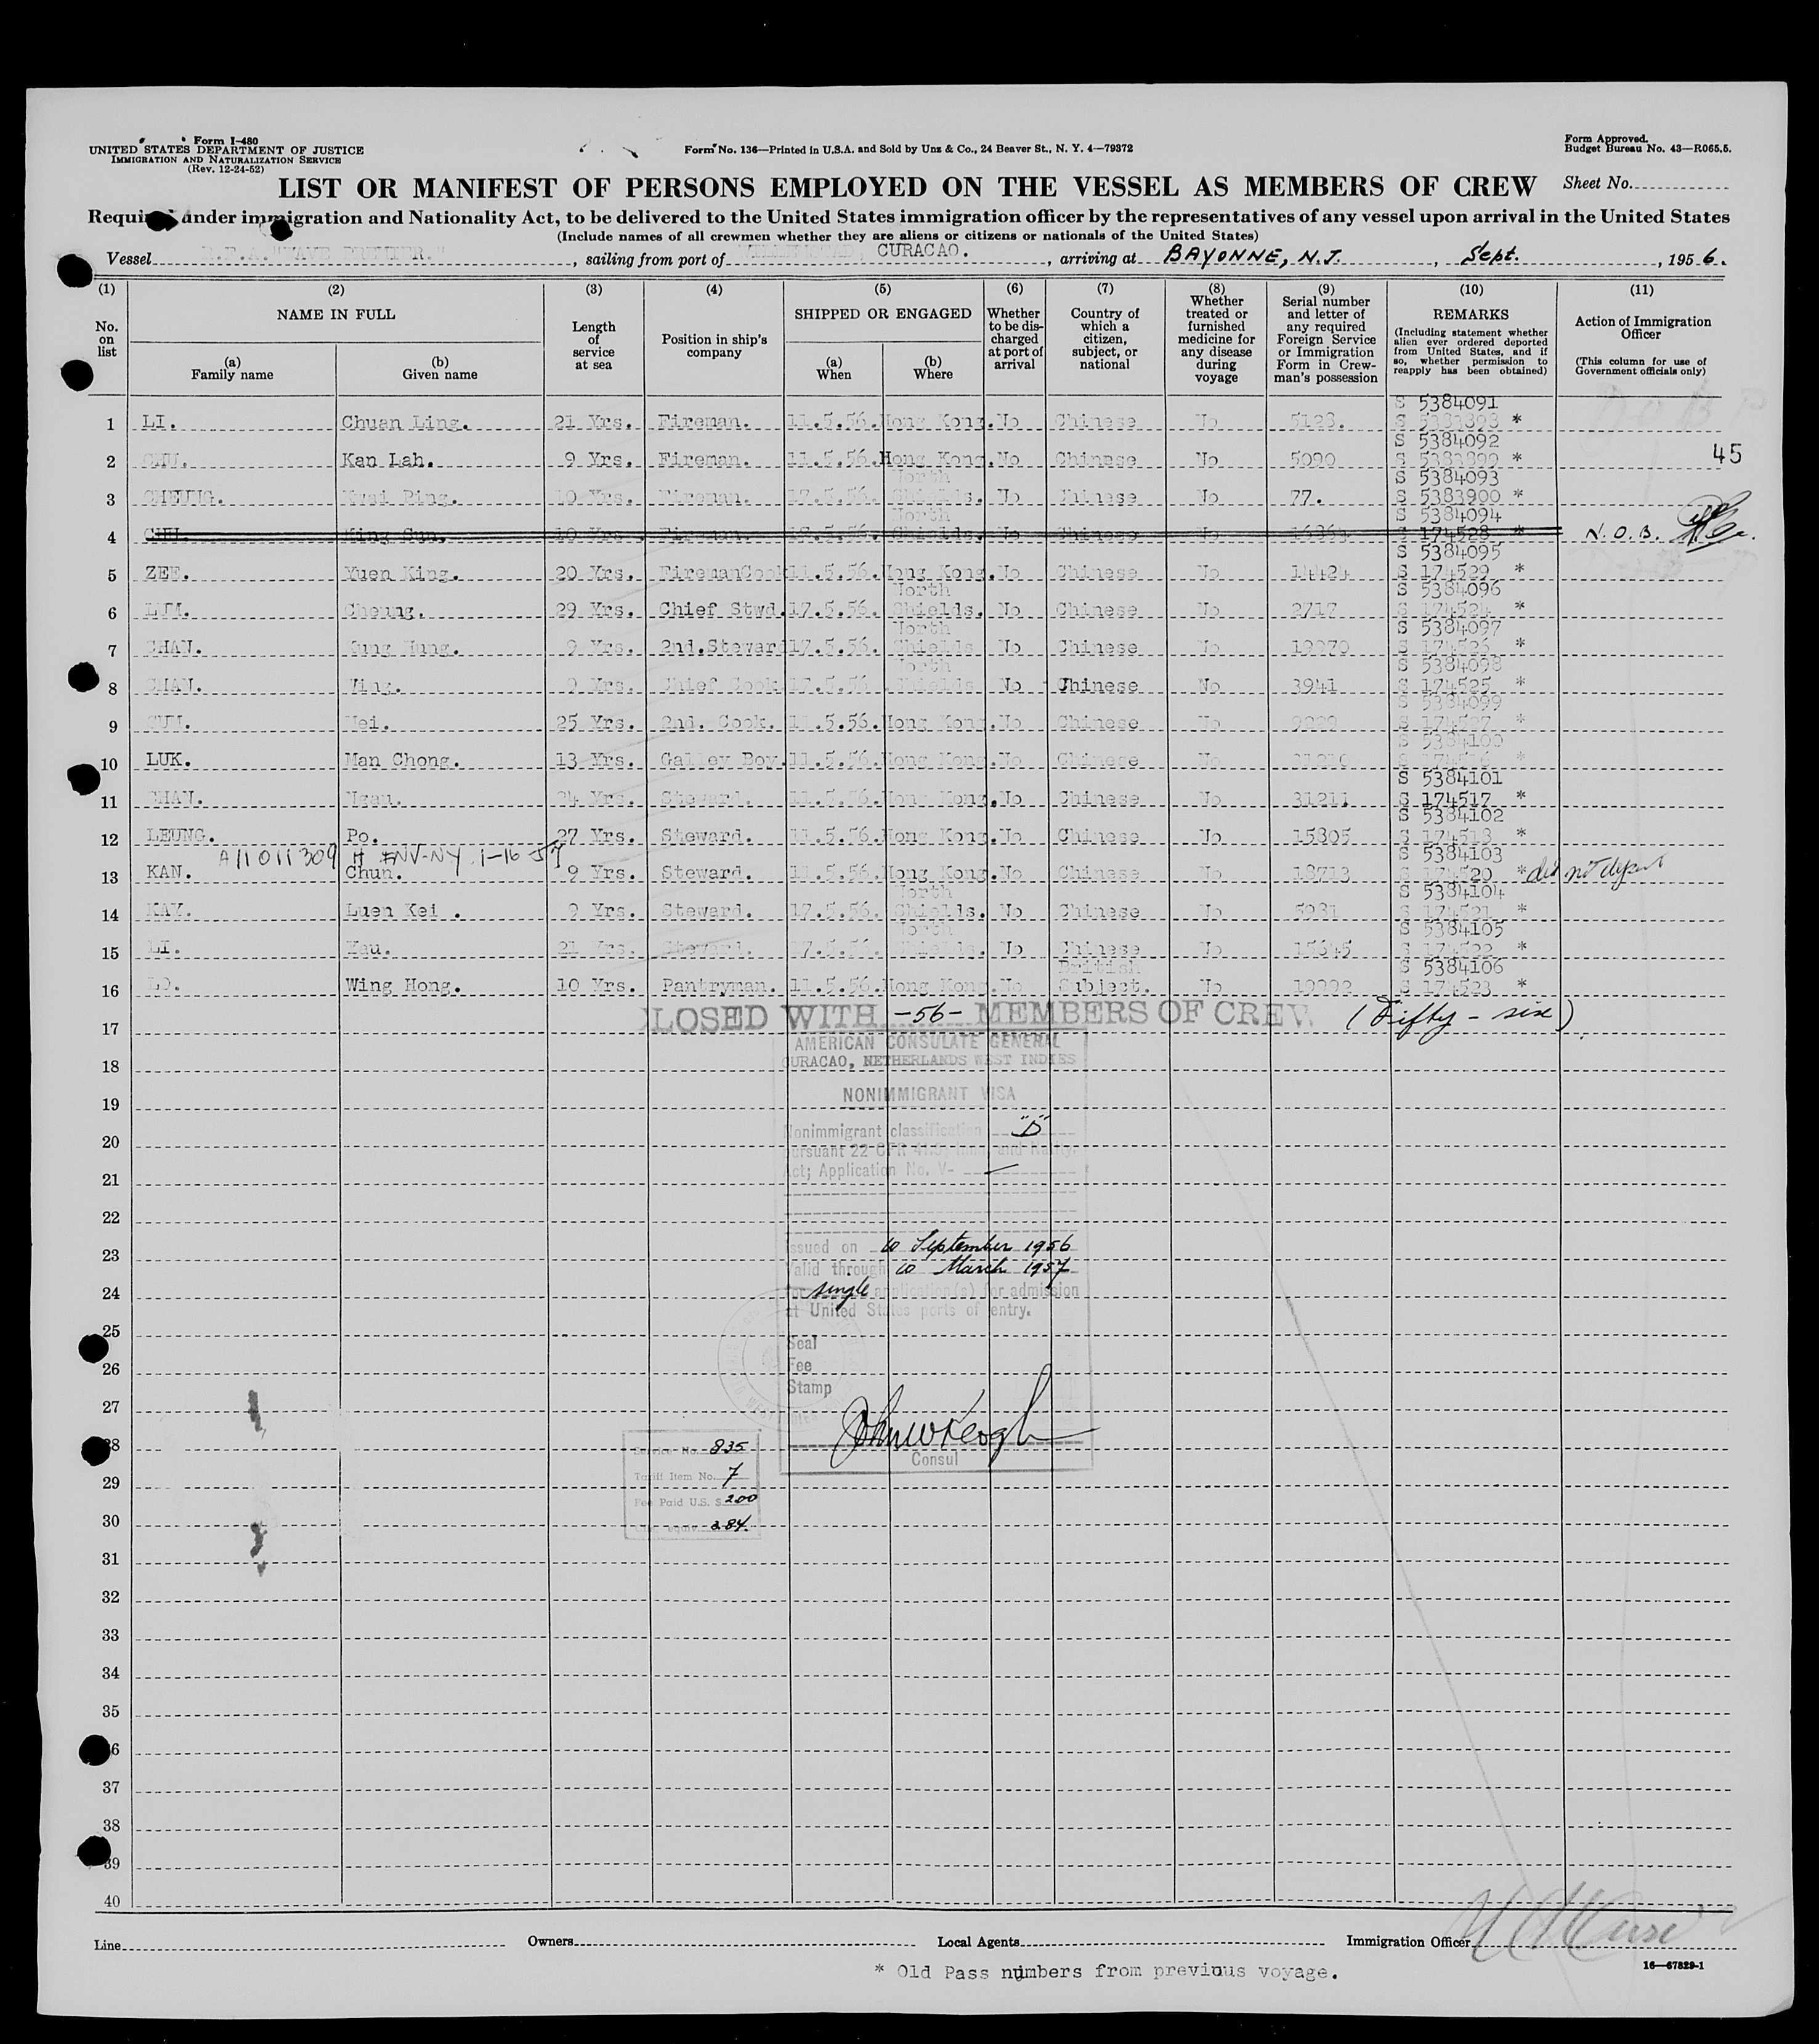 Form I-480
UNITED STATES DEPARTMENT OF JUSTICE
IMMIGRATION AND NATURALIZATION SERVICE
(Rev. 12-24-52)
Form No. 136—Printed in U.S.A. and Sold by Unz & Co., 24 Beaver St., N. Y. 4—79372
Form Approved.
Budget Bureau No. 43—R065.5.
LIST OR MANIFEST OF PERSONS EMPLOYED ON THE VESSEL AS MEMBERS OF CREW
Sheet No.
Required under immigration and Nationality Act, to be delivered to the United States immigration officer by the representatives of any vessel upon arrival in the United States
(Include names of all crewmen whether they are aliens or citizens or nationals of the United States)
Vessel R.F.A. "WAVE PREMIER.", sailing from port of CURACAO., arriving at BAYONNE, N.J., Sept., 1956.
(1) No. on list
(2) NAME IN FULL
(a) Family name
(b) Given name
(3) Length of service at sea
(4) Position in ship's company
(5) SHIPPED OR ENGAGED
(a) When
(b) Where
(6) Whether to be discharged at port of arrival
(7) Country of which a citizen, subject, or national
(8) Whether treated or furnished medicine for any disease during voyage
(9) Serial number and letter of any required Foreign Service or Immigration Form in Crewman's possession
(10) REMARKS
(Including statement whether alien ever ordered deported from United States, and if so, whether permission to reapply has been obtained)
(11) Action of Immigration Officer
(This column for use of Government officials only)
S 5384091
1 LI. Chuan Ling. 21 Yrs. Fireman. 11.5.56. Hong Kong. No Chinese No 5128. *
S 5384092
2 Kan Lah. 9 Yrs. Fireman. 11.5.56. Hong Kong. No Chinese No 5090 S 5383899 * 45
North S 5384093
3 CHEUNG. Kwai Ping. 10 Yrs. Fireman. 17.5.56. Shields. No Chinese No 77. S 5383900 *
North S 5384094
4 CHU. Ming Sun. 10 Yrs. Fireman. Shields. No Chinese No S 174528 * N.O.B.
S 5384095
5 ZEE. Yuen King. 20 Yrs. FiremanCook 11.5.56. Hong Kong. No Chinese No 14424 S 174529 *
North S 5384096
6 LUM. Cheung. 29 Yrs. Chief Stwd. 17.5.56. Shields. No Chinese No 2717 S 174524 *
North S 5384097
7 CHAN. Kung Hung. 9 Yrs. 2nd.Steward 17.5.56. Shields No Chinese No 19270 S 174526 *
North S 5384098
8 CHAN. Wing. 9 Yrs. Chief Cook. 17.5.56. Shields No Chinese No 3941 S 174525 *
S 5384099
9 SUN. Wei. 25 Yrs. 2nd. Cook. 11.5.56. Hong Kong. No Chinese No S 174527 *
S 5384100
10 LUK. Man Chong. 13 Yrs. Galley Boy. 11.5.56. Hong Kong. No Chinese No *
S 5384101
11 CHAN. Ngau. 24 Yrs. Steward. 11.5.56. Hong Kong. No Chinese No 31211 S 174517 *
S 5384102
12 LEUNG. Po. 27 Yrs. Steward. 11.5.56. Hong Kong. No Chinese No 15805 S 174518 *
A11 011 309 H INV-NY 1-16 57 S 5384103
13 KAN. Chun. 9 Yrs. Steward. 11.5.56. Hong Kong. No Chinese No 18713 S 174520 * did not depart
North S 5384104
14 KAY. Luen Kei. 9 Yrs. Steward. 17.5.56. Shields. No Chinese No 5931 S 174521 *
North S 5384105
15 LI. Kau. 21 Yrs. Steward. 17.5.56. Shields. No Chinese No 15645 S 174522 *
British S 5384106
16 LO. Wing Hong. 10 Yrs. Pantryman. 11.5.56. Hong Kong. No Subject. No 19992 S 174523 *
CLOSED WITH -56- MEMBERS OF CREW (Fifty-six)
17
AMERICAN CONSULATE GENERAL
CURACAO, NETHERLANDS WEST INDIES
18
NONIMMIGRANT VISA
19
Nonimmigrant classification "D"
20
pursuant 22 CFR
Act; Application No. V- —
21
22
Issued on 10 September 1956
23
Valid through 10 March 1957
24
for single application(s) for admission
at United States ports of entry.
25
Seal
26
Fee
Stamp
27
John W Keogh
28
Consul
Service No. 835
29
Tariff Item No. 7
Fee Paid U.S. $ 2.00
30
equiv. 3.84.
31
32
33
34
35
36
37
38
39
40
Line Owners Local Agents Immigration Officer
* Old Pass numbers from previous voyage.
16—67829-1